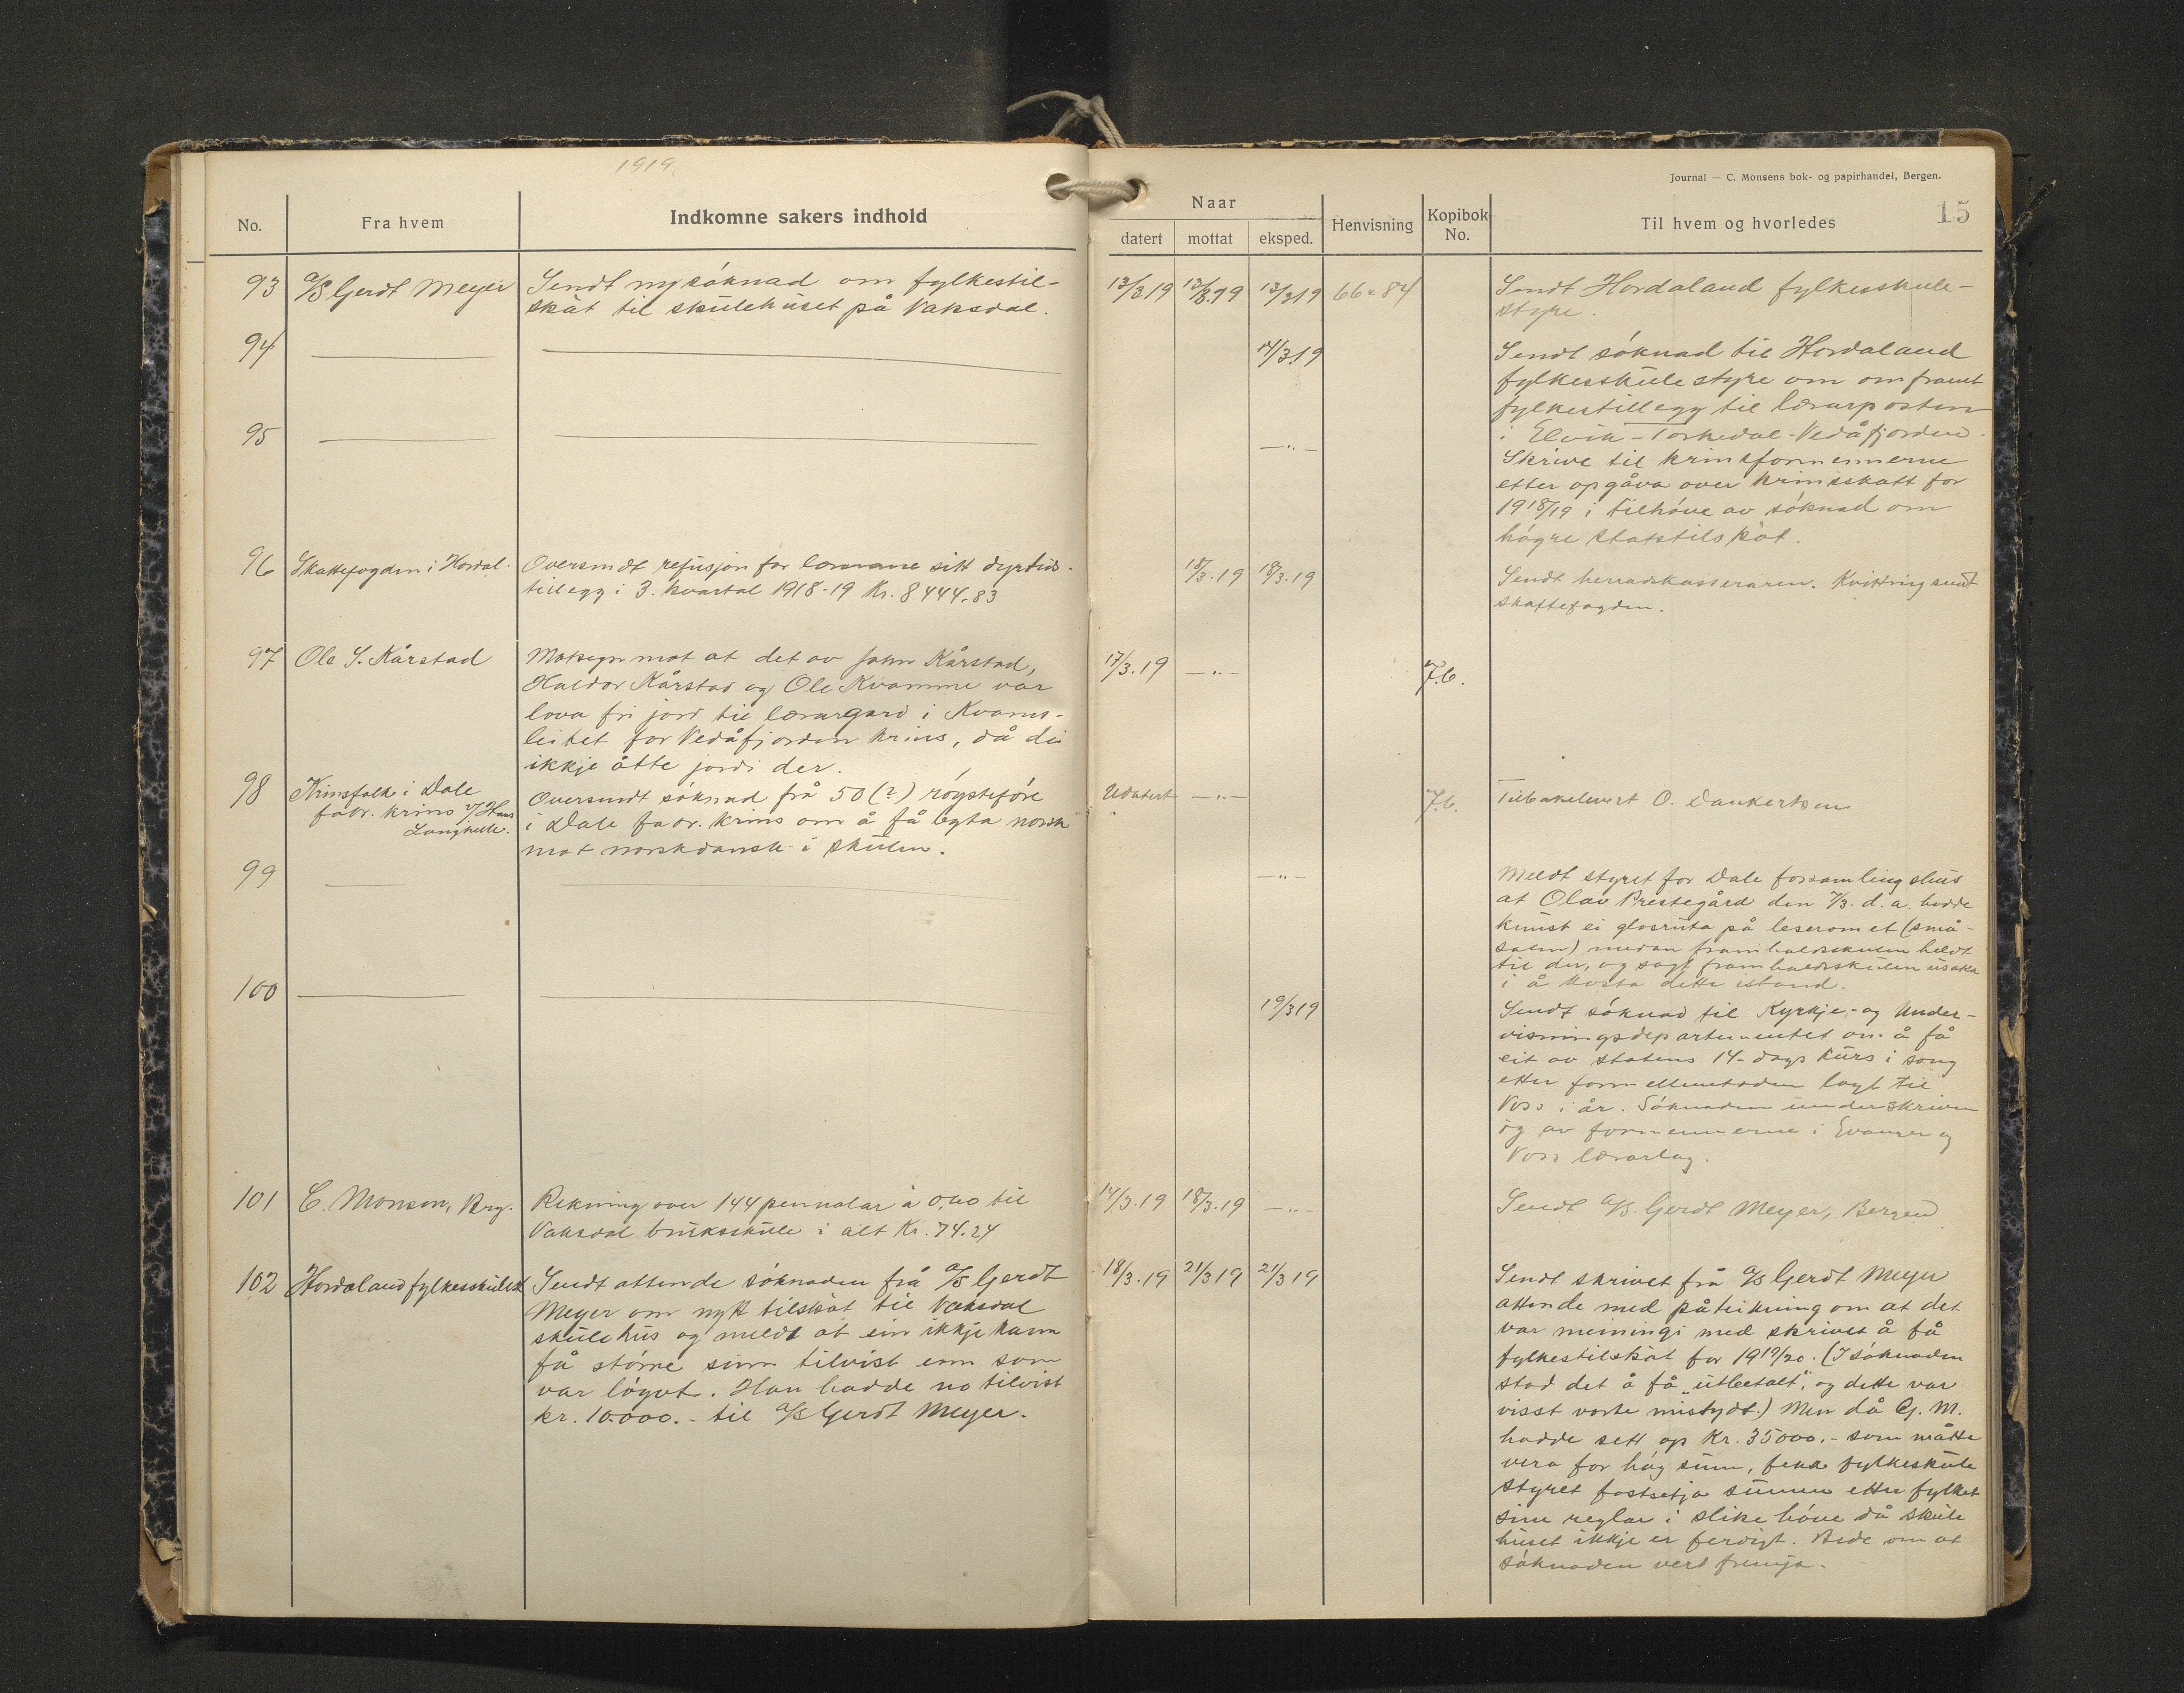 1919
Journal — C. Monsens bok- og papirhandel, Bergen.
15
No. Fra hvem Indkomne sakers indhold
Naar
datert mottat eksped. Henvisning Kopibok No. Til hvem og hvorledes
93 A/S Gerdt Meyer Sendt ny søknad om fylkestil-
skot til skulehuset på Vaksdal.
13/3 19 13/3.19 13/3 19 66 84 Sendt Hordaland fylkesskule-
styre.
94
14/3.19 Sendt søknad til Hordaland
fylkesskulestyre om omframt
fylkestillegg til lærarposten
i Elvik-Torkedal-Vedåfjorden.
95
—„— Skrive til krinsformennerne
etter opgåva over krinsskatt for
1918/19 i tilhøve av søknad om
høgre statstilskot.
96 Skattefogden i Hordal. Oversendt refusjon for lærarane sitt dyrtids-
tillegg i 3. kvartal 1918-19 Kr. 8444.83
18/3.19 18/3.19 Sendt herradskasseraren. Kvittring sendt
skattefogden.
97 Ole S. Kårstad Motsegn mot at det av John Kårstad,
Haldor Kårstad og Ole Kvamme var
lova fri jord til lærargard i Kvams-
leitet for Vedåfjorden krins, då dei
ikkje åtte jordi der.
17/3.19 —„— J.b.
98 Krinsfolk i Dale
fabr. krins v/ Hans
Langhelle.
Oversendt søknad frå 50 (?) røysteføre
i Dale fabr. krins om å få bytta norsk
mot norskdansk i skulen.
Udatert —„— J.b. Tilbakelevert O. Dankertsen
99
—„— Meldt styret for Dale forsamlingshus
at Olav Prestegård den 7/3. d.a. hadde
knust ei glasruta på leseromet (små-
salen) medan framhaldsskulen heldt
til der, og sagt framhaldsskulen
i å kosta dette istand.
100
19/3 19 Sendt søknad til Kyrkje- og Under-
visningsdepartementet om å få
eit av statens 14-dags kurs i song
etter formellmetoden lagt til
Voss i år. Søknaden underskriven
og av formennerne i Evanger og
Voss lærarlag.
101 C. Monsen, Brg. Rekning over 144 pennalar à 0,60 til
Vaksdal brukskule i alt Kr. 74.24
14/3.19 18/3.19 —„— Sendt A/S. Gerdt Meyer, Bergen
102 Hordaland fylkesskulest. Sendt attende søknaden frå A/S Gerdt
Meyer om nytt tilskot til Vaksdal
skulehus og meldt at ein ikkje kann
få større sum tilvist enn som
var lógvt. Han hadde no tilvist
kr. 10.000.- til A/S Gerdt Meyer.
18/3.19 21/3 19 21/3 19 Sendt skrivet frå A/S Gerdt Meyer
attende med påteikning om at det
var meiningi med skrivet å få
fylkestilskot for 1919/20. (I søknaden
stod det å få „utbetalt", og dette var
visst vorte mistydt.) Men då G. M.
hadde sett op Kr. 35000.- som måtte
vera for høg sum, fekk fylkesskule
styret fastsetja summen etter fylket
sine reglar i slike høve då skule
huset ikkje er ferdigt. Bede om at
søknaden vert fremja.